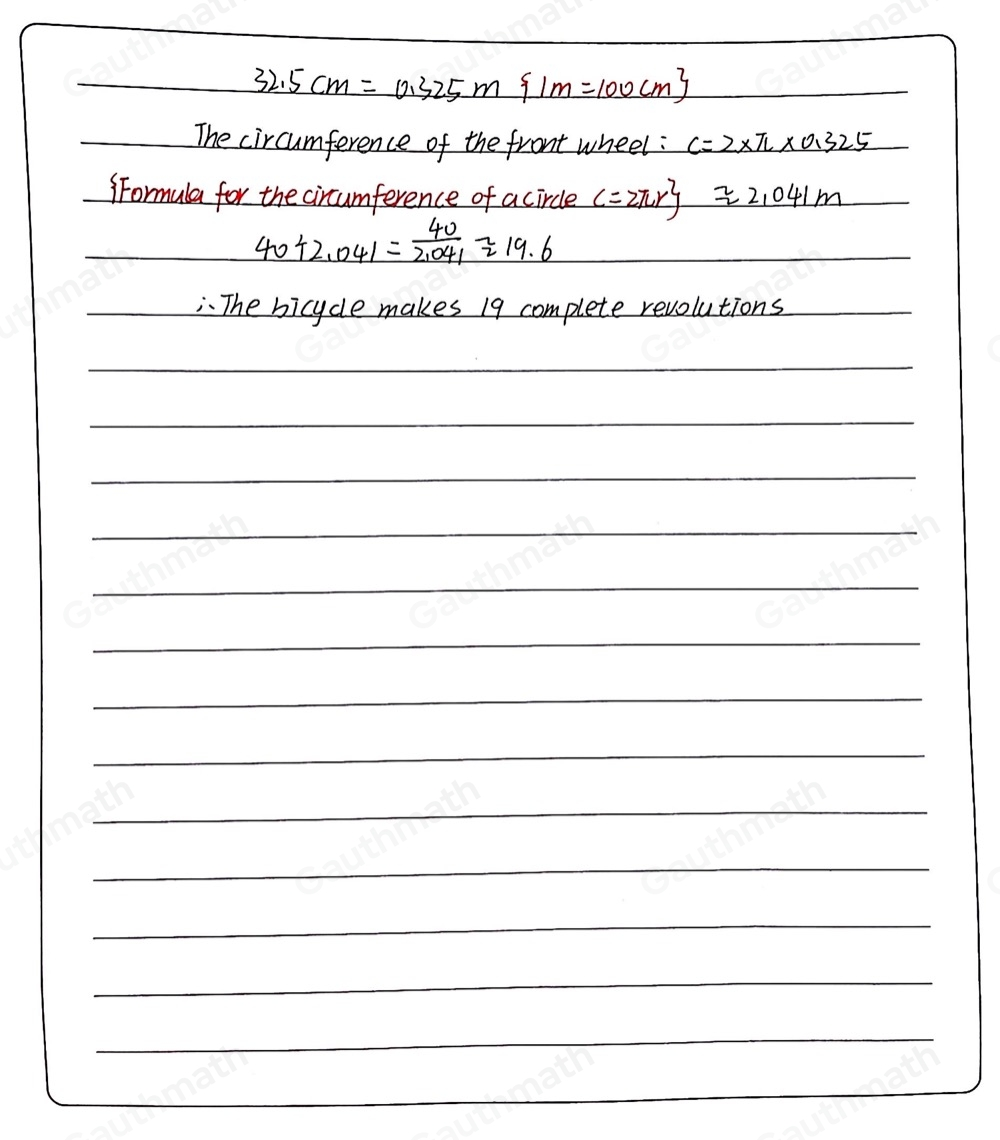 32.5 cm = 0.325 m {1m = 100 cm}
The circumference of the front wheel : C = 2 × π × 0.325
{Formula for the circumference of a circle C = 2πr} ≈ 2.041 m
40 ÷ 2.041 = 40/2.041 ≈ 19.6
∴ The bicycle makes 19 complete revolutions
Gauthmath